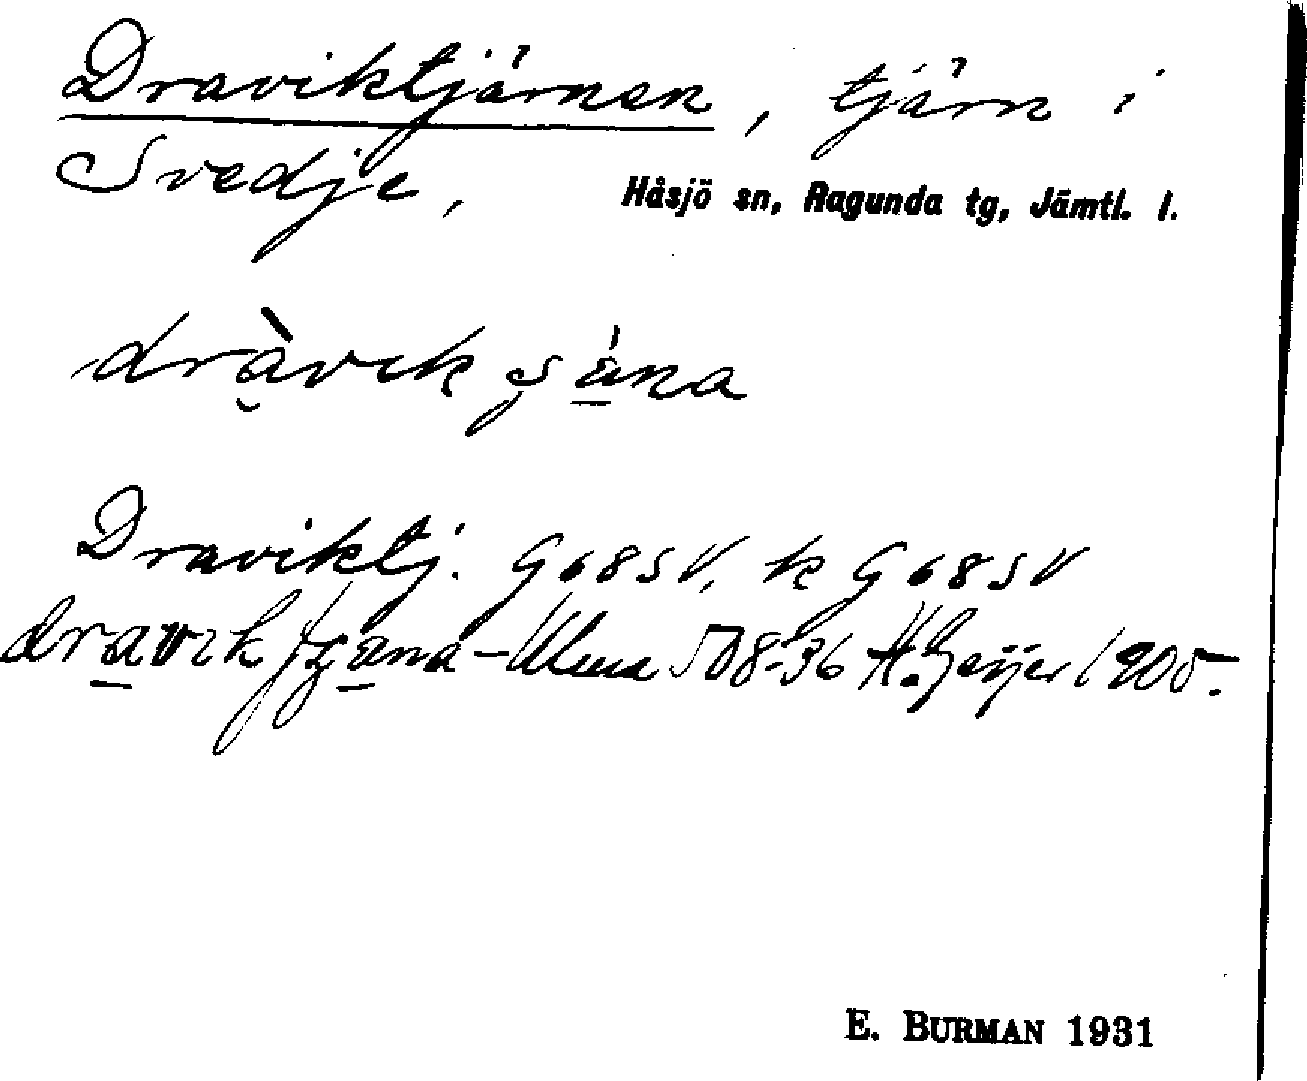 Draviktjärnen, tjärn i
Svedje, Håsjö sn, Ragunda tg, Jämtl. l.
dràvik
Draviktj. G68SV, k G68SV
508-36 H. Geijer 1905.
E. BURMAN 1931